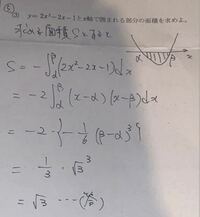 ⑤
(3) y=2x²-2x-1とx軸で囲まれる部分の面積を求めよ。
求める面積Sとすると
α β x
S = -∫_α^β (2x²-2x-1)dx
= -2∫_α^β (x-α)(x-β)dx
= -2·{-1/6 (β-α)³}
= 1/3 · √3³
= √3 ···